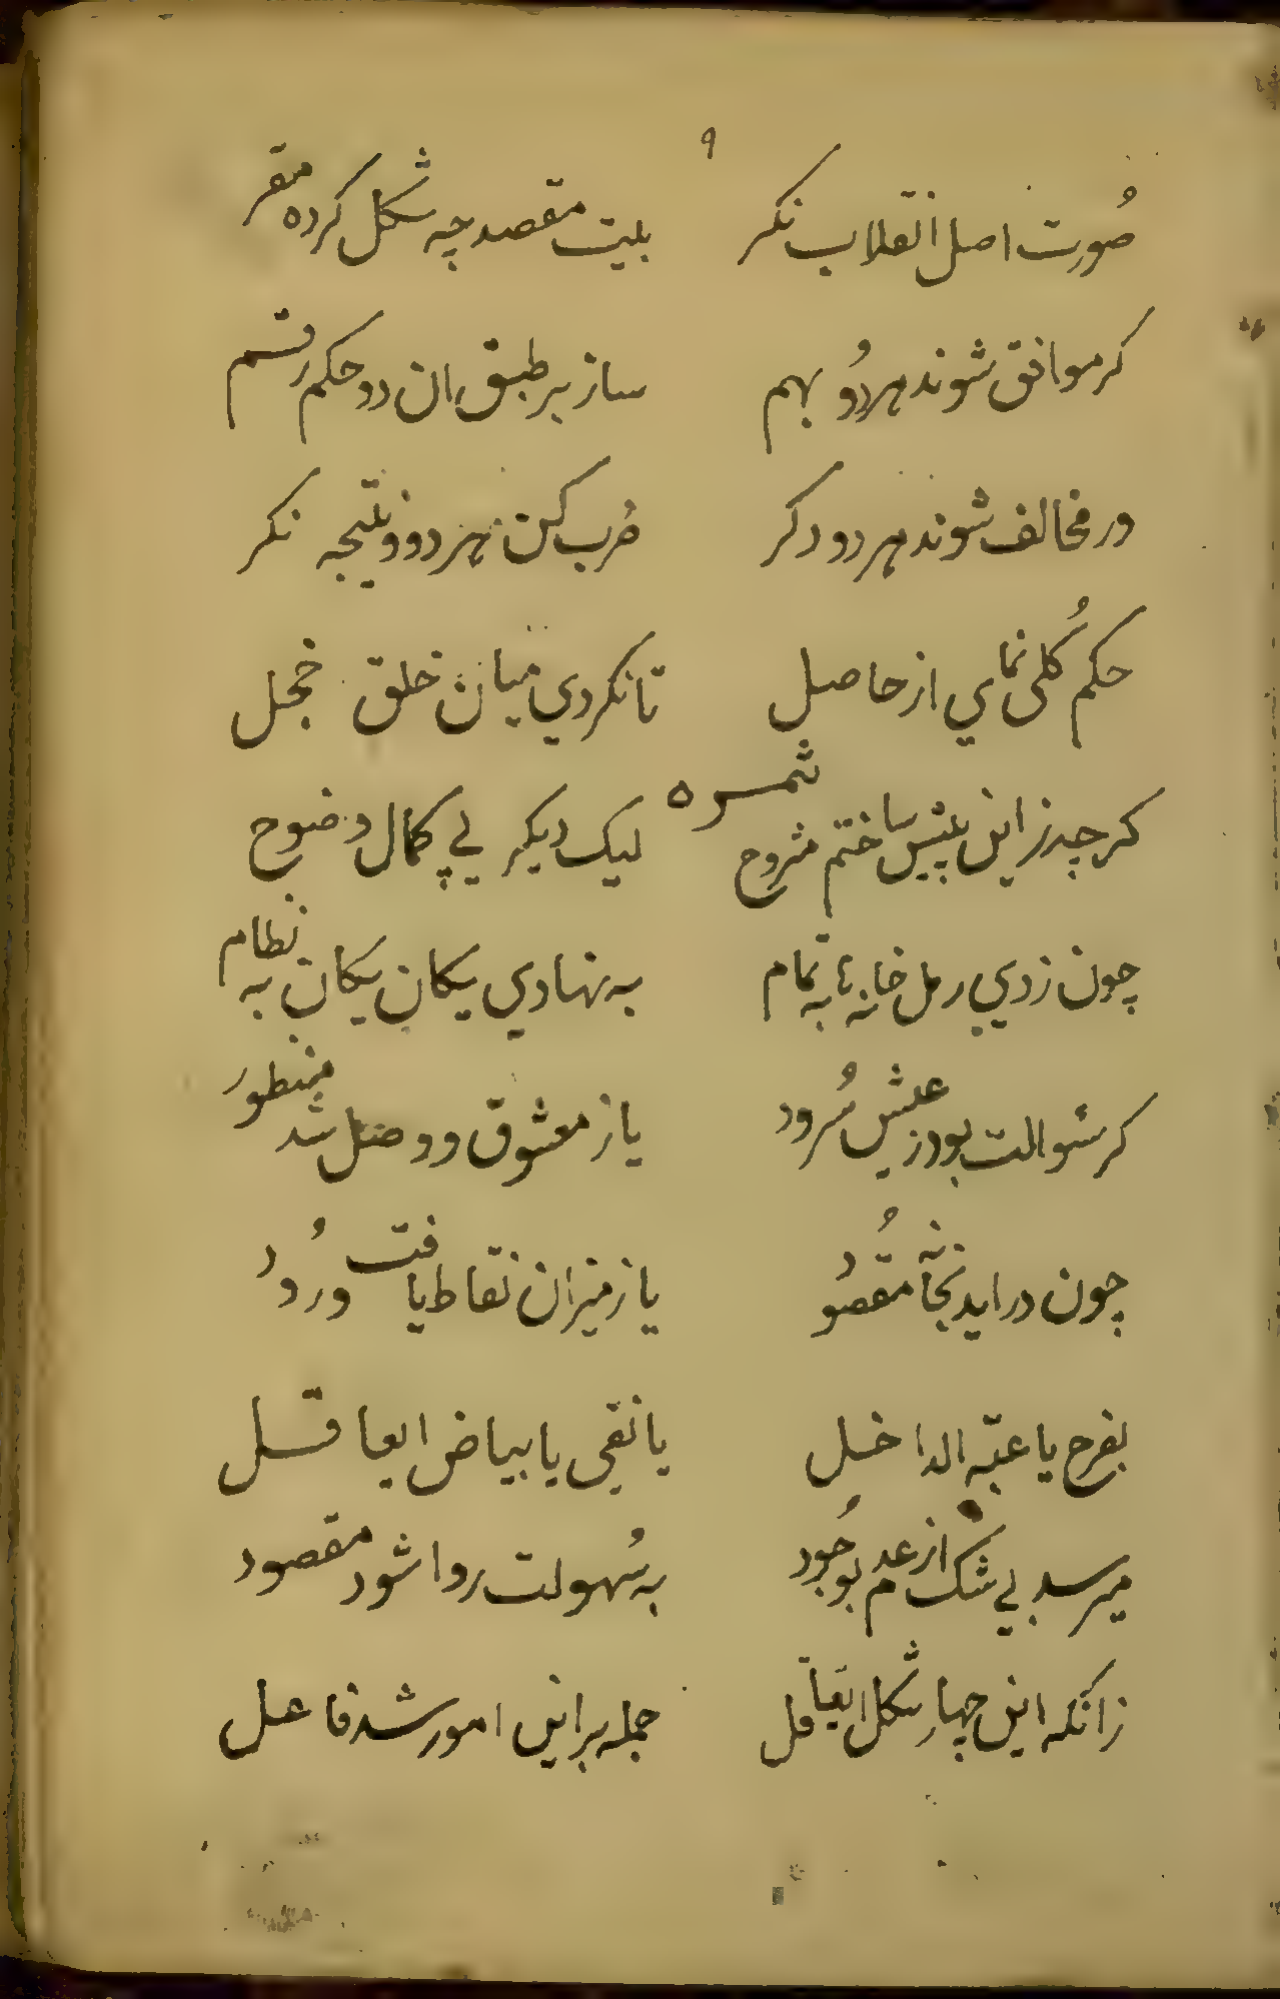 ۹
صُورت اصل انقلاب نکر بیت مقصد چه شکل کرده مقر
کر موافق شوند هر دوُ بهم ساز بر طبق ان دو حکم رقم
ور مخالف شوند هر دو دکر ضرب کن هر دو و نتیجه نکر
حکم کُلی نمای از حاصل تا نکردي میان خلق خجل
ثمره
کرچه زاین پیش ساختم مشروح لیک دیکر پی کمال وضوح
چون زدي رمل خانها به تمام به نهادي یکان یکان به نظام
کر سئوالت بود ز عیش سُرود یا ز معشوق و وصل شد منظور
چون دراید بخانه مقصُود یا ز میزان نقاط یافت ورُود
بفرح یا عتبه الداخل یا نقی یا بیاض ایعاقل
میرسد بی شک از عدم بوجُود به سُهولت روا شود مقصود
زانکه این چهار شکل ایعاقل جمله بر این امور شد فاعل